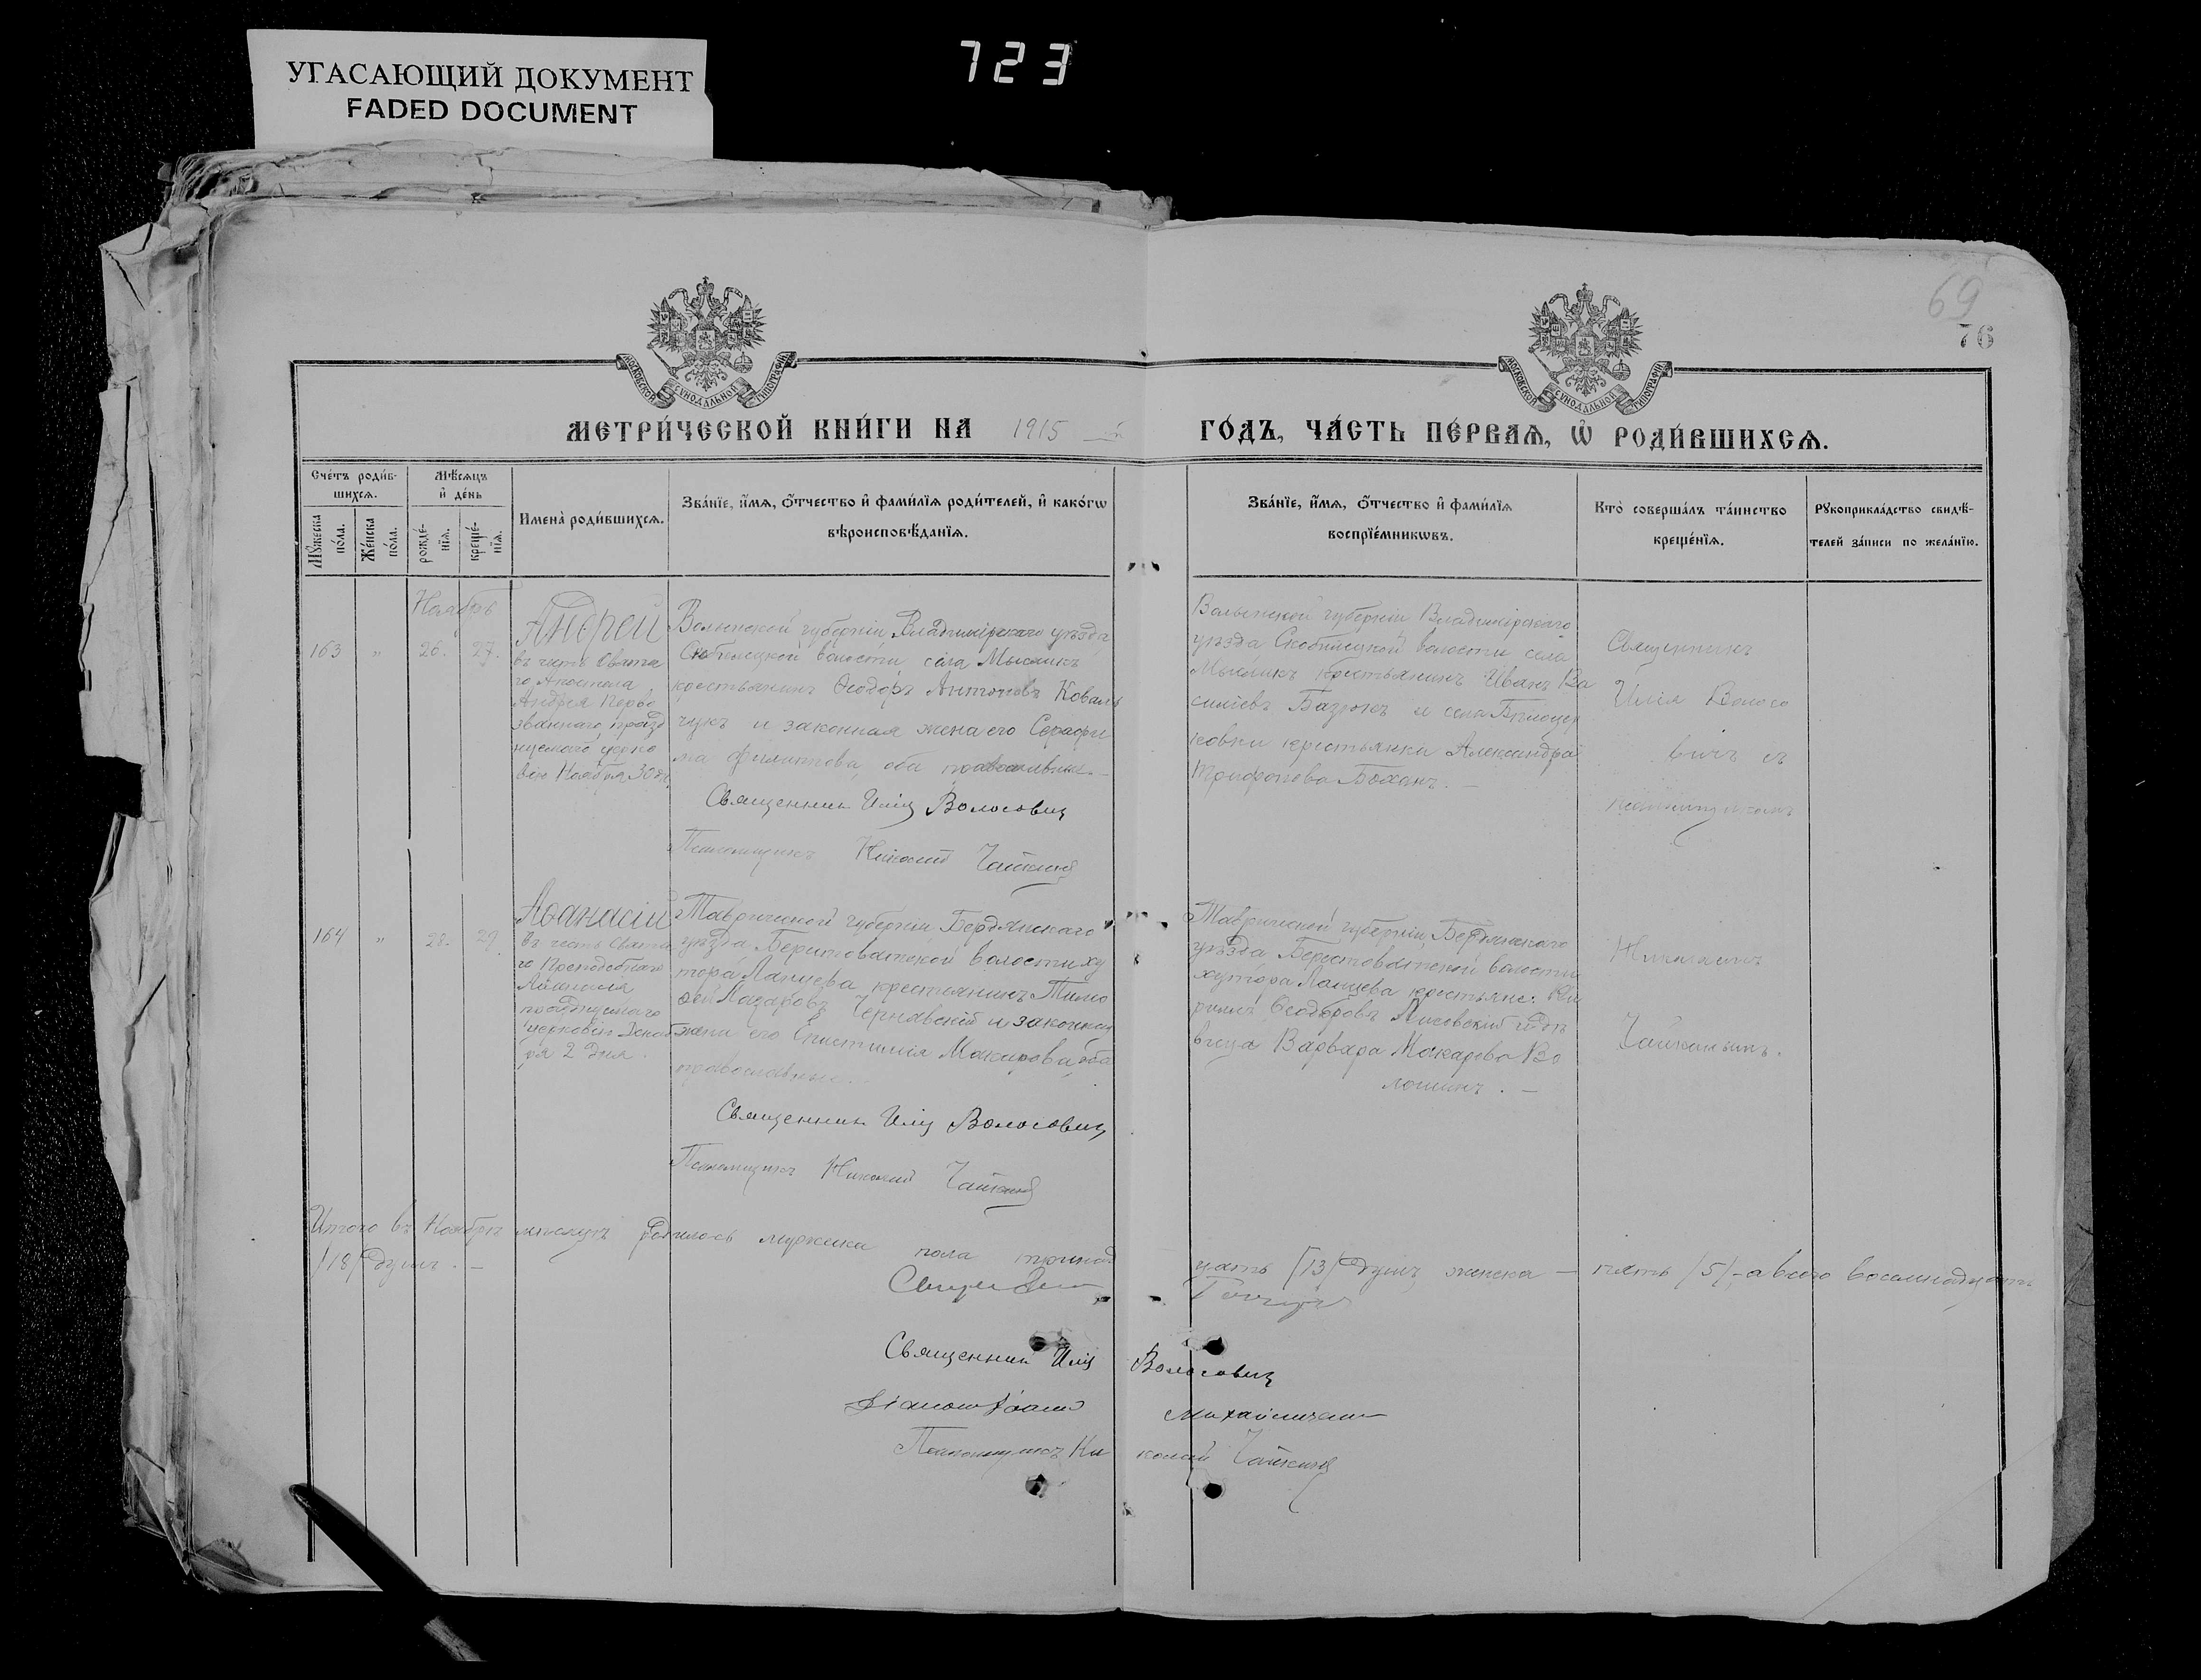 УГАСАЮЩИЙ ДОКУМЕНТ
FADED DOCUMENT
723
69
76
МОСКОВСКОЙ СѴНОДАЛЬНОЙ ТИПОГРАФІИ
МОСКОВСКОЙ СѴНОДАЛЬНОЙ ТИПОГРАФІИ
МЕТРИ́ЧЕСКОЙ КНИ́ГИ НА 1915 й
ГО́ДЪ, ЧА́СТЬ ПЕ́РВАѦ, Ѡ РОДИ́ВШИХСѦ.
Сче́тъ роди́в-
шихсѧ.
Мѣ́сѧцъ
и҆ де́нь
Мꙋ́жеска по́ла.
Же́нска по́ла.
рожде́-нїѧ.
креще́-нїѧ.
Имена̀ роди́вшихсѧ.
Зва́нїе, и҆́мѧ, ѻ҆́тчество и҆ фами́лїѧ роди́телей, и҆ како́гѡ
вѣроисповѣ́данїѧ.
Зва́нїе, и҆́мѧ, ѻ҆́тчество и҆ фами́лїѧ
воспрїе́мникѡвъ.
Кто̀ соверша́лъ та́инство
креще́нїѧ.
Рꙋкоприкла́дство свидѣ́-
телей за́писи по жела́нїю.
Ноябрь
163 " 26. 27.
Андрей
въ честь Свята
го Апостола
Андрея Перво
званнаго, празд
нуемаго церко
вію Ноября 30 дн.
Волынской губерніи, Владимірскаго уѣзда,
волости, села Мысликъ
крестьянинъ Ѳеодоръ Антоновъ Коваль
чукъ и законная жена его Серафи
ма Филиппова, оба православные.
Священникъ Илія Волосовичъ
Псаломщикъ Николай Чайкинъ
Волынской губерніи Владимірскаго
уѣзда волости села
Мысликъ крестьянинъ Иванъ Ва
сильевъ Базюкъ и села Бѣлоцер
ковки крестьянка Александра
Трифонова Боханъ. —
Священникъ
Илія Волосо
вичъ съ
псаломщикомъ
164 " 28. 29.
Аѳанасій
въ честь Свята
го Преподобнаго
Аѳанасія
празднуемаго
церковію Декаб
ря 2 дня.
Таврической губерніи Бердянскаго
уѣзда, Берестоватской волости ху
тора Ланцева крестьянинъ Тимо
ѳей Лазаровъ Чернавскій и законная
жена его Епистимія Макарова, оба
православные.
Священникъ Илія Волосовичъ
Псаломщикъ Николай Чайкинъ
Таврической губерніи Бердянскаго
уѣзда Берестоватской волости
хутора Ланцева крестьяне: Ки
риллъ Ѳеодоровъ Лисовскій и дѣ
вица Варвара Макарова Во
лошинъ. —
Николаемъ
Чайкинымъ.
Итого въ Ноябрѣ мѣсяцѣ родилось мужеска пола тринад
цать /13/ душъ, женска — пять /5/, а всего восемнадцать
/18/ душъ. —
Священникъ Илія Волосовичъ
Діаконъ Іоаннъ
Псаломщикъ Николай Чайкинъ